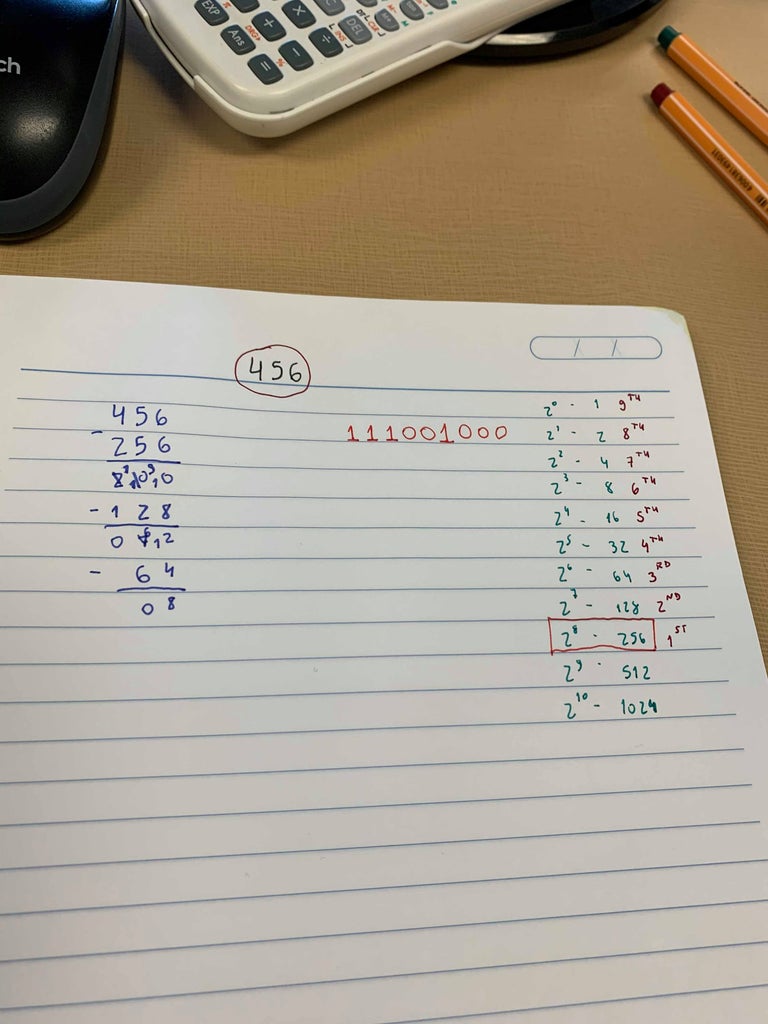 ch
EXP
Ans
+
×
÷
−
=
DEL
456
456
- 
256
- 128
- 64
08
111001000
2⁰ - 1 9TH
2¹ - 2 8TH
2² - 4 7TH
2³ - 8 6TH
2⁴ - 16 5TH
2⁵ - 32 4TH
2⁶ - 64 3RD
2⁷ - 128 2ND
2⁸ - 256 1ST
2⁹ - 512
2¹⁰ - 1024